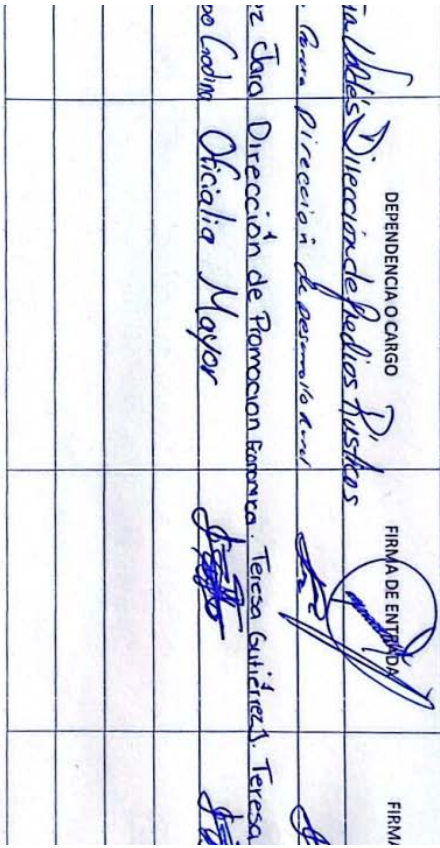 DEPENDENCIA O CARGO FIRMA DE ENTRADA FIRMA
Valdés Dirección de Predios Rústicos
Dirección de Desarrollo Rural
Jara Dirección de Promocion Economica Teresa Gutiérrez J. Teresa
Oficialia Mayor